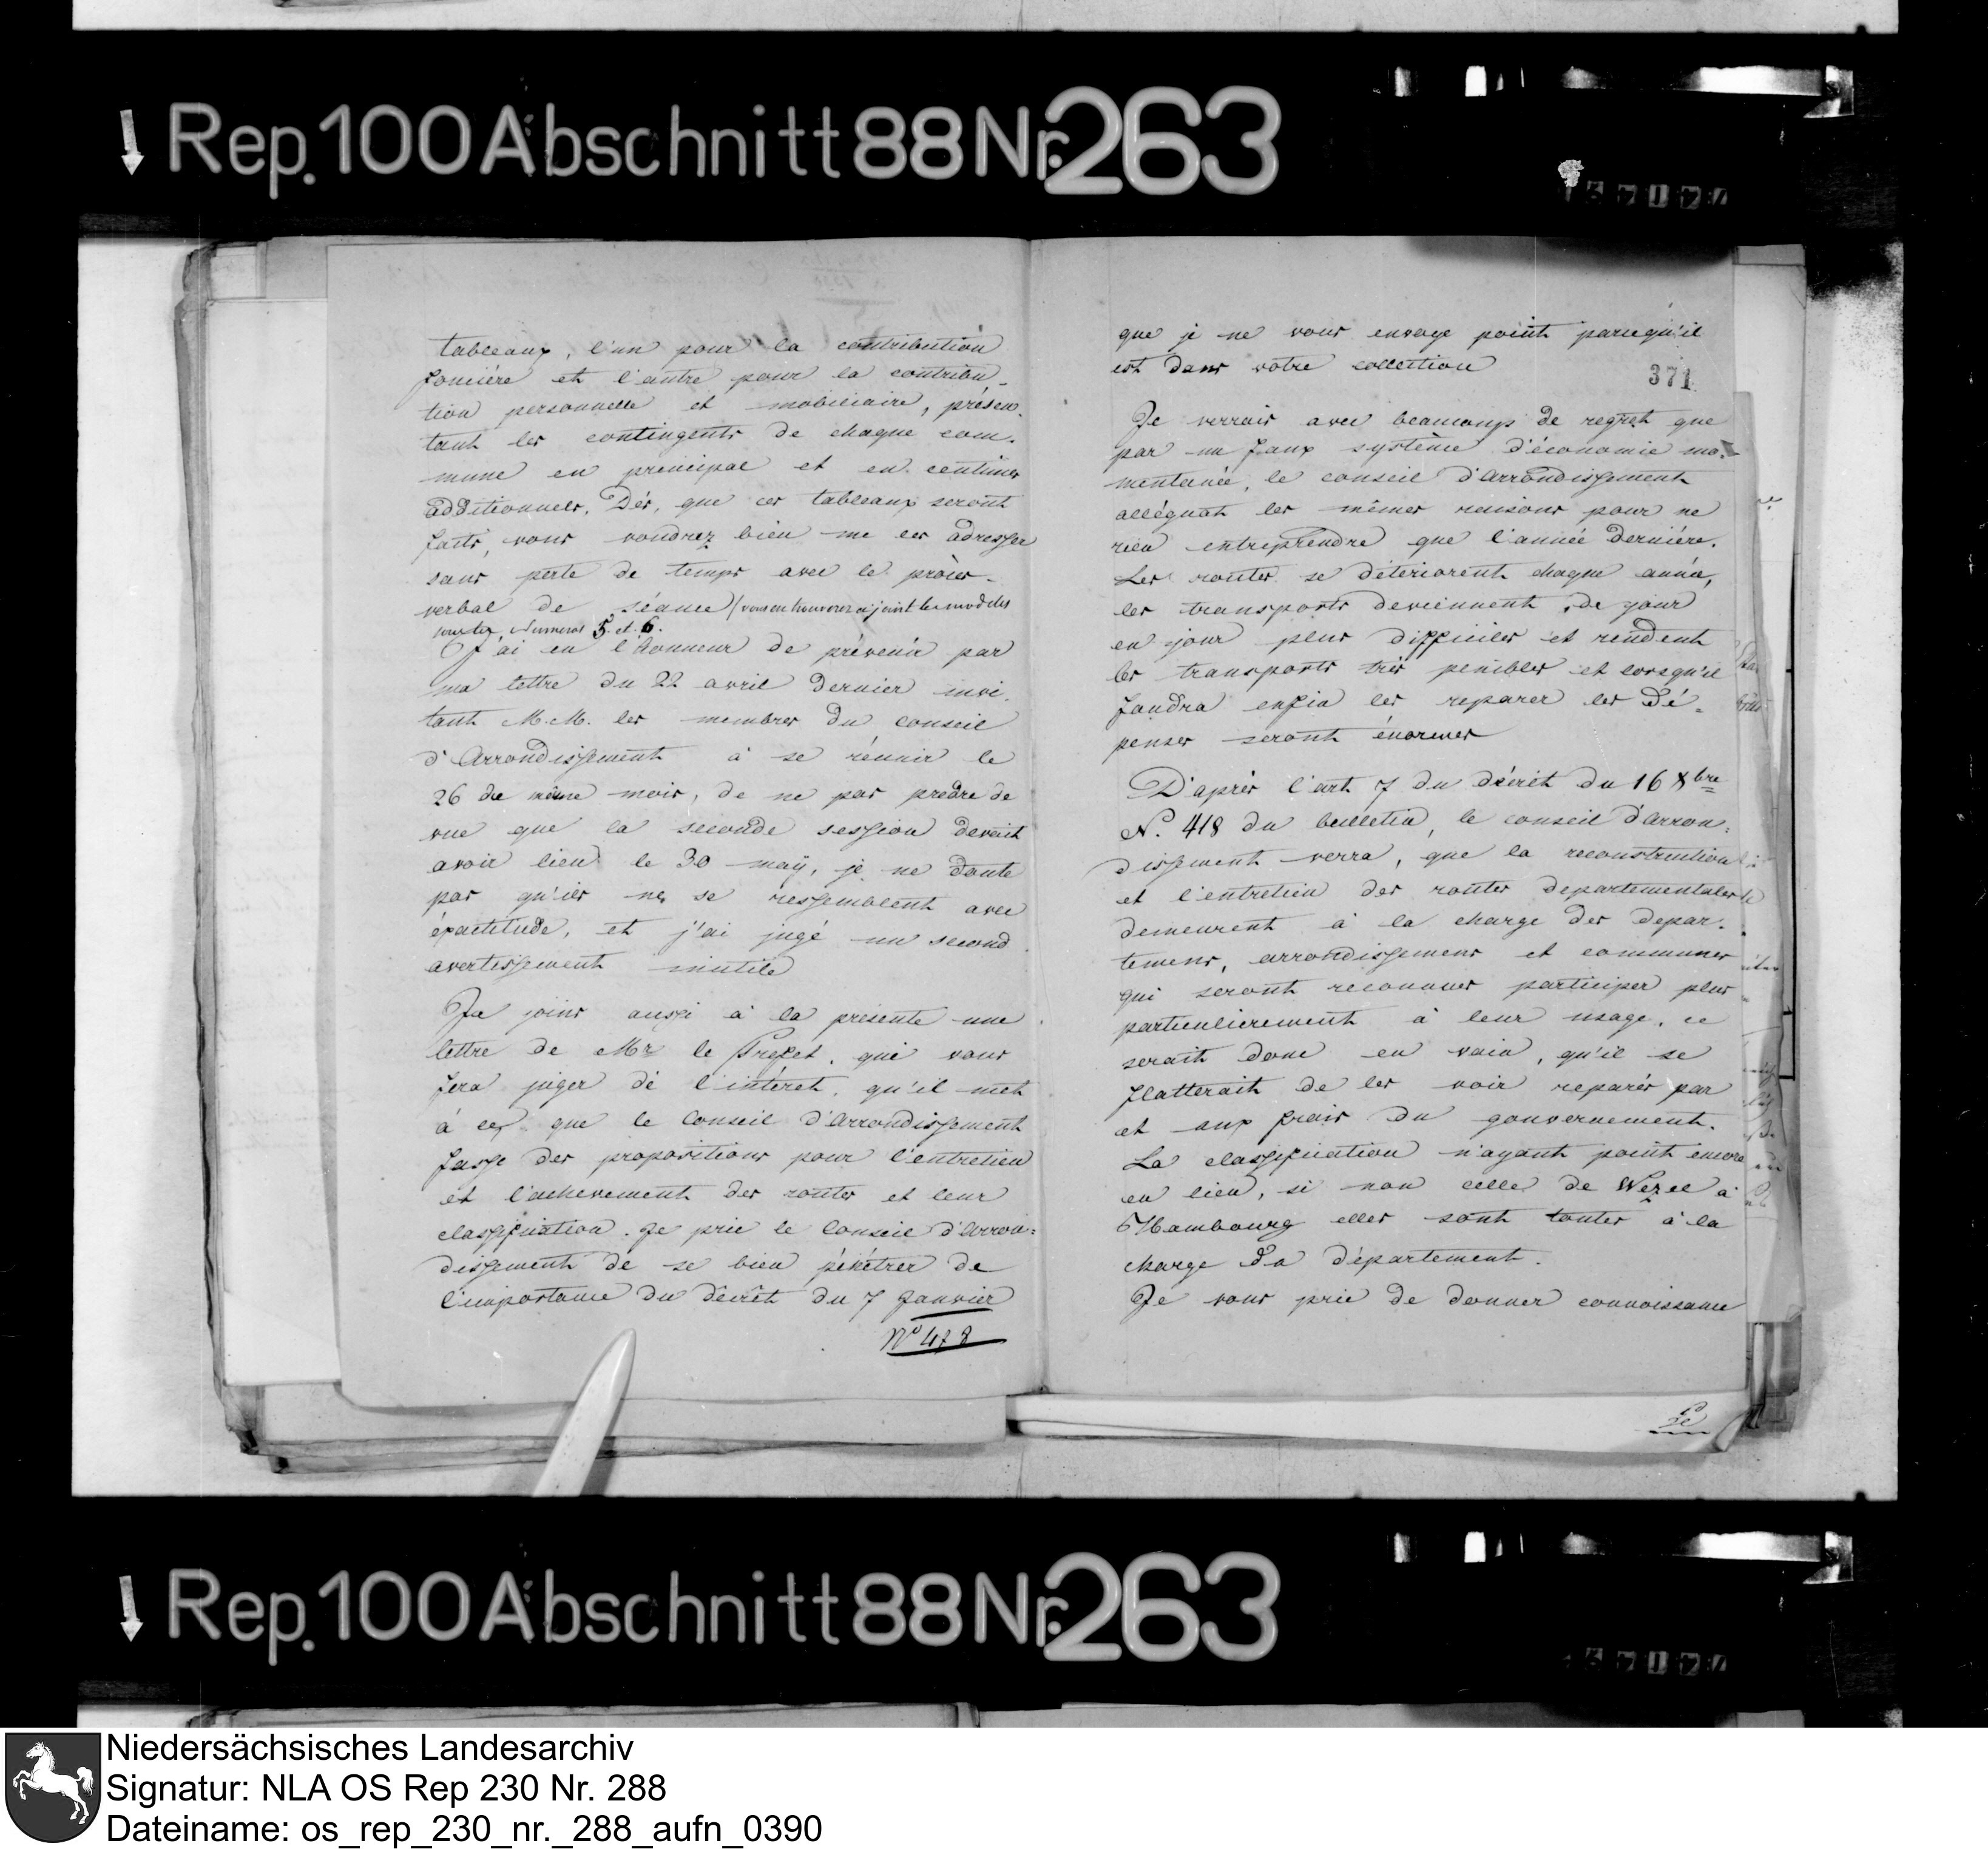 Rep. 100 Abschnitt 88 Nr. 263
tableaux, l'un pour la contribution
foncière et l'autre pour la contribu-
tion personnelle et mobiliaire, présen-
tant les contingents de chaque com-
mune en principal et en centimes
additionnels. Dès, que ces tableaux seront
faits, vous voudrez bien me les adresser
sans perte de temps avec le procès-
verbal de séance (vous en trouverez ci joint les modèles
sous les Numeros 5. et 6.
J'ai eu l'honneur de prévenir par
ma lettre du 22 avril dernier invi-
tant M.M. les membres du conseil
d'Arrondissement à se réunir le
26 du même mois, de ne pas predre de
vue que la seconde session devait
avoir lieu le 30 maÿ, je ne doute
pas qu'ils ne se ressemblent avec
éxactitude, et j'ai jugé un second
avertissement inutile
Je joins aussi à la presente une
lettre de Mr le Prefet, qui vous
fera juger de l'intéret, qu'il met
à ce que le Conseil d'Arrondissement
fasse des propositions pour l'entretien
et l'achevement des routes et leur
classification. Je prie le Conseil d'Arron=
dissement de se bien pénétrer de
l'importance du décrêt du 7 Janvier
No 418
que je ne vous envoye point parcequ'il
est dans votre collection
371
Je verrais avec beaucoups de regret que
par un faux système d'économie mo-
mentanée, le conseil d'Arrondissement
alléguat les mêmes raisons pour ne
rien entreprendre que l'année dernière.
Les routes se déteriorent chaque année,
les transports deviennent, de jour
en jour plus difficiles et rendent
les transports très penibles et lorsqu'il
faudra enfin les reparer les dé=
penses seront énormes
D'après l'art 7 du décrêt du 16 Xbre
N. 418 du bulletin, le conseil d'arron=
dissement verra, que la reconstruction
et l'entretien des routes departementales
demeurent à la charge des depar-
temens, arrondissemens et communes
qui seront reconnues participer plus
particulierement à leur usage, ce
serait donc en vain, qu'il se
flatterait de les voir reparés par
et aux frais du gouvernement.
La classification n'ayant point encore
eu lieu, si non celle de Wezel à
Hambourg elles sont toutes à la
charge du département.
Je vous prie de donner connoissance
Rep. 100 Abschnitt 88 Nr. 263
Niedersächsisches Landesarchiv
Signatur: NLA OS Rep 230 Nr. 288
Dateiname: os_rep_230_nr._288_aufn_0390